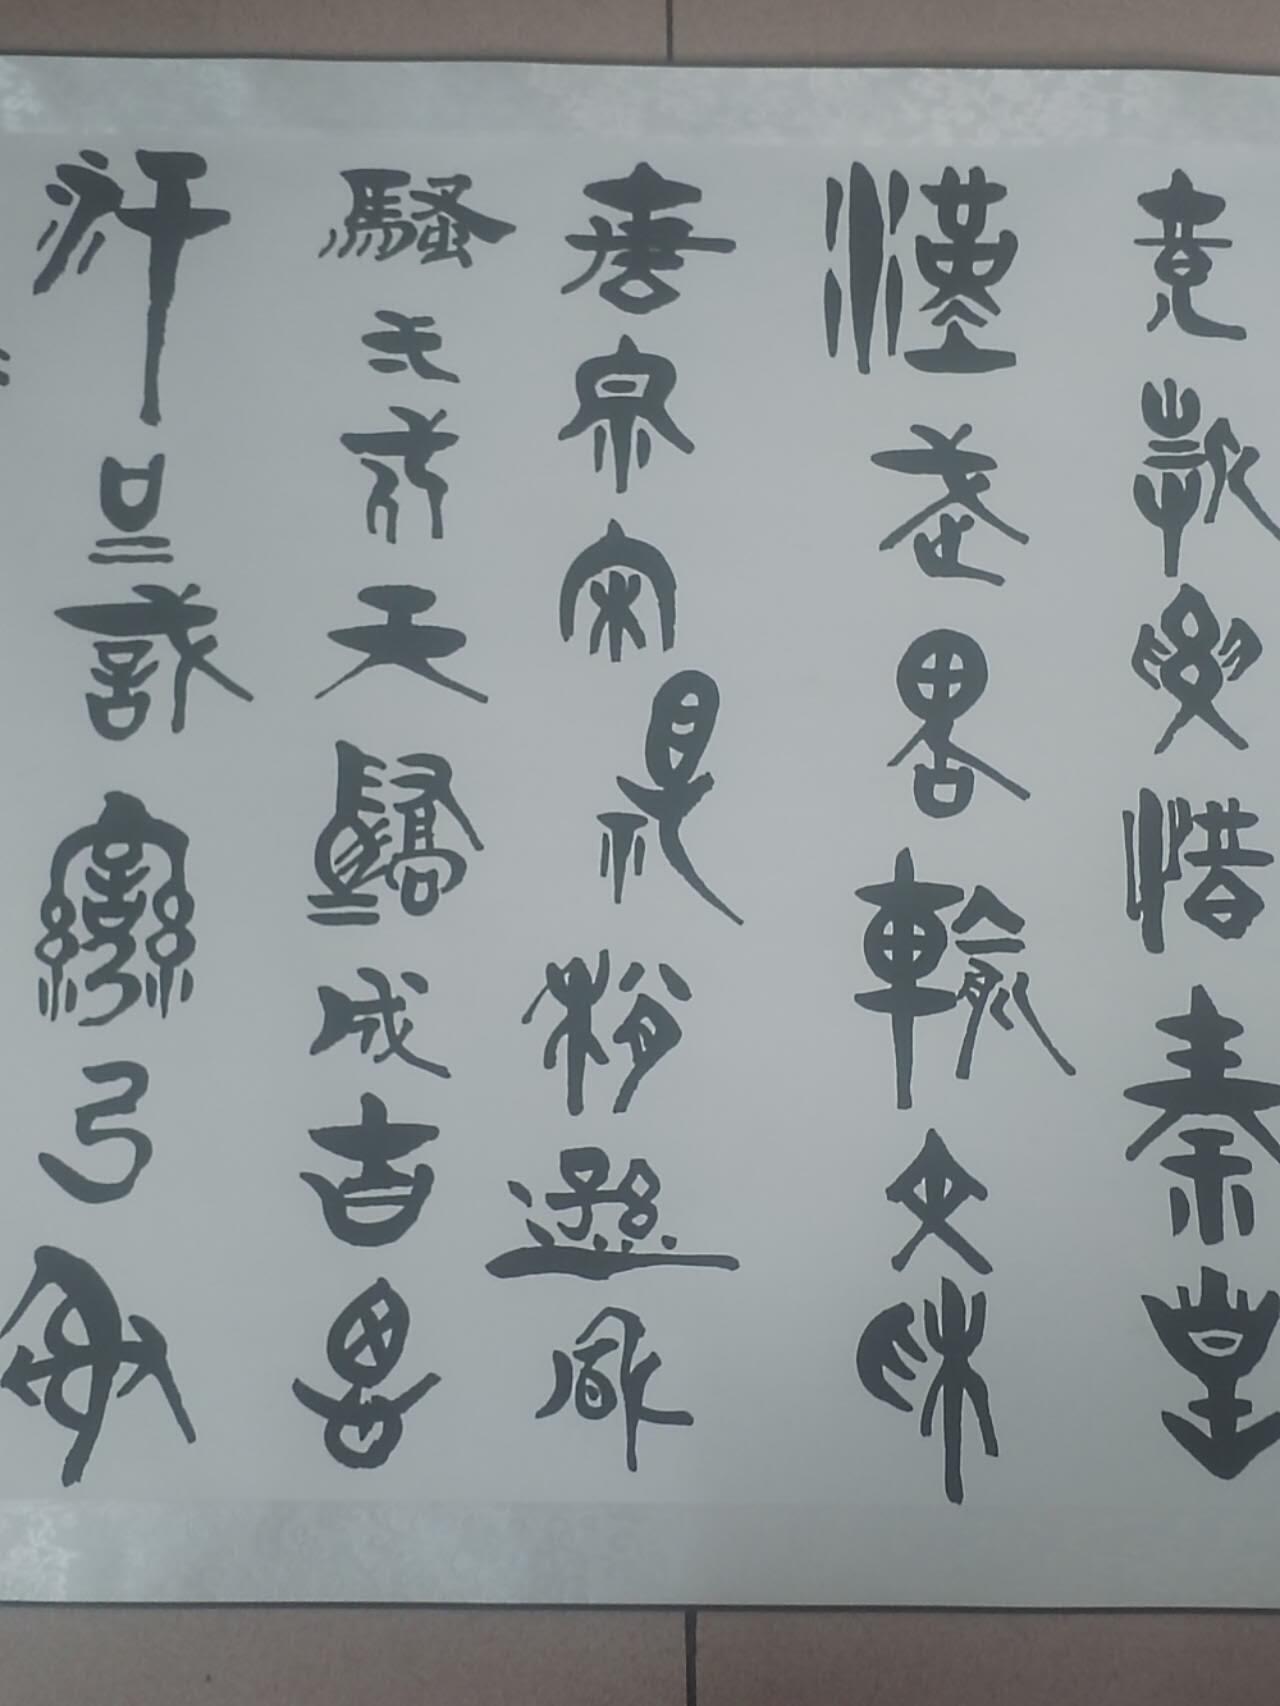 竞折腰惜秦皇
漢武略輸文采
唐宗宋祖稍遜風
騷一代天驕成吉思
汗只識彎弓射